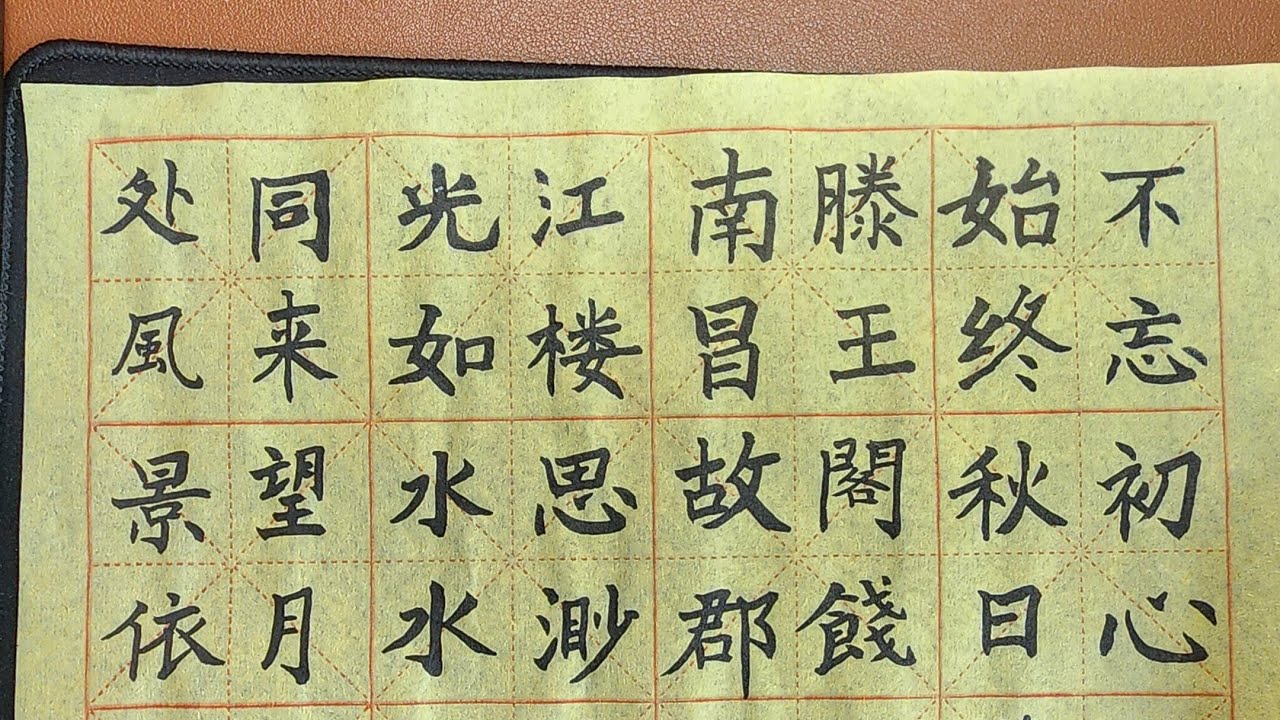 不忘初心
始终秋日
滕王閣餞
南昌故郡
江楼思渺
光如水水
同来望月
处風景依